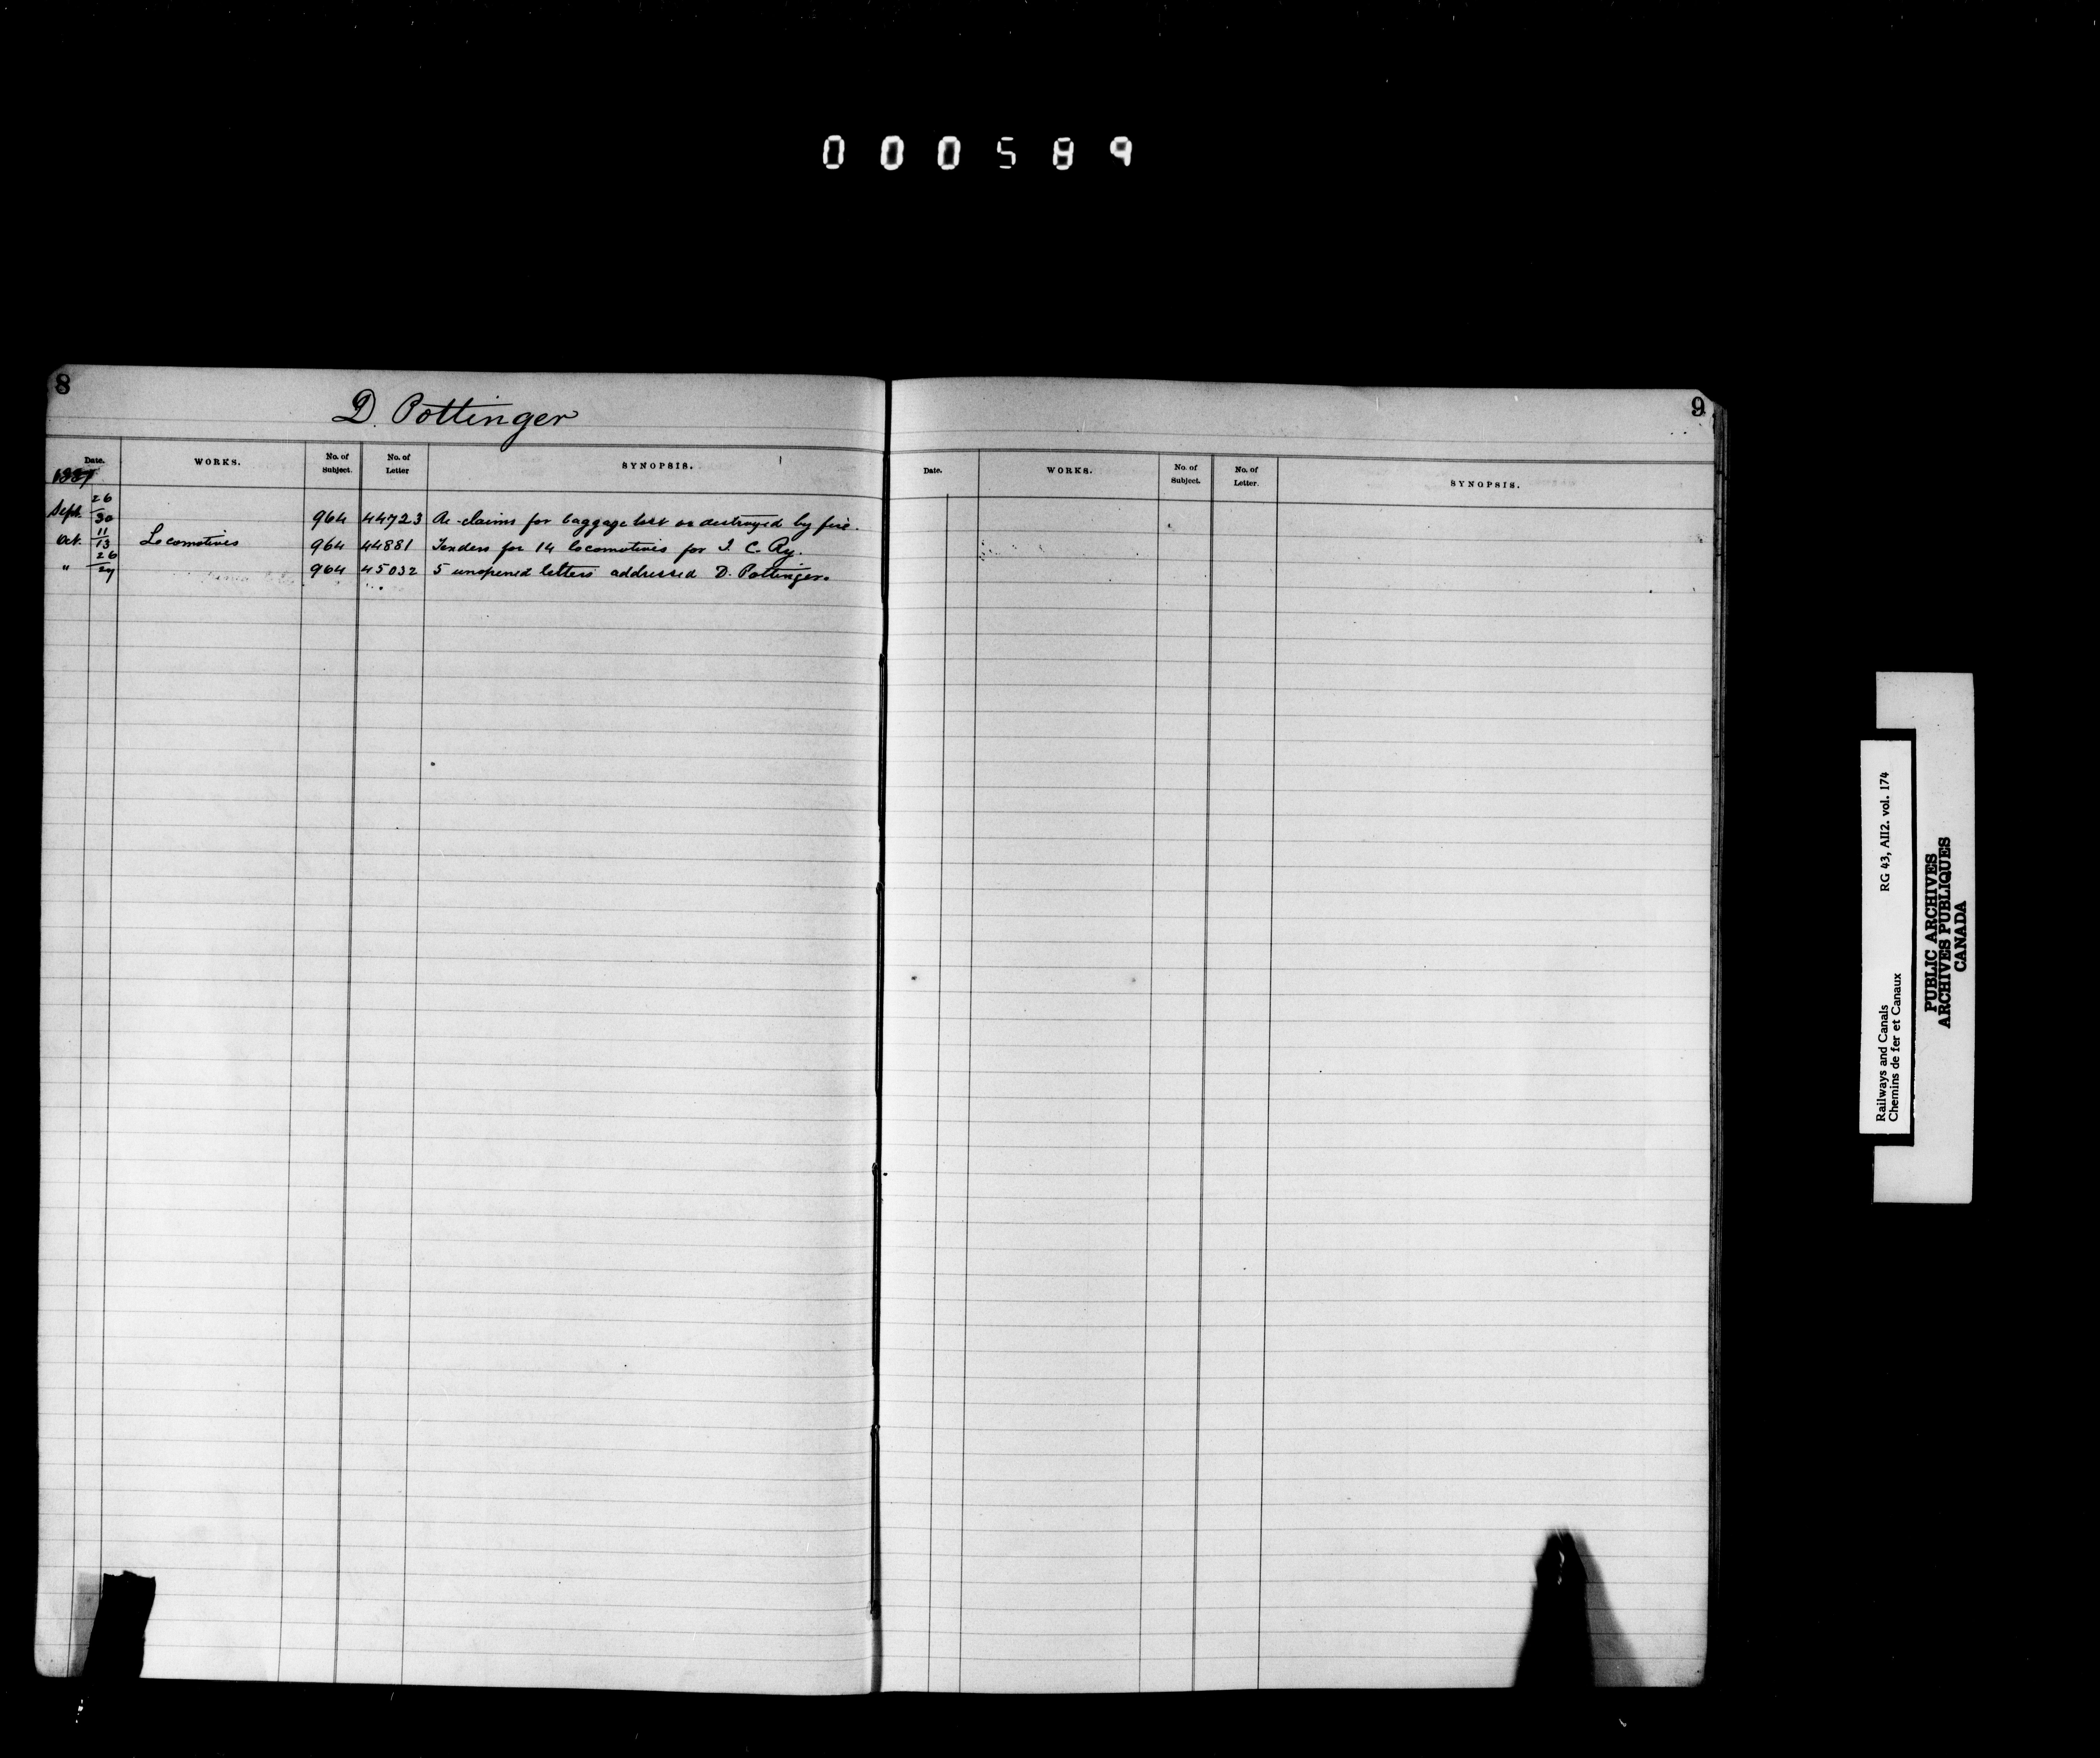 000589
8
D. Pottinger
Date. WORKS. No. of Subject. No. of Letter SYNOPSIS.
Sept. 26/30 964 44723 Re claims for baggage lost or destroyed by fire.
Oct. 11/13 Locomotives 964 44881 Tenders for 14 locomotives for I. C. Ry.
" 26/27 964 45032 5 unopened letters addressed D. Pottinger.
9
Date. WORKS. No. of Subject. No. of Letter. SYNOPSIS.
Railways and Canals RG 43, AII2. vol. 174
Chemins de fer et Canaux
PUBLIC ARCHIVES
ARCHIVES PUBLIQUES
CANADA